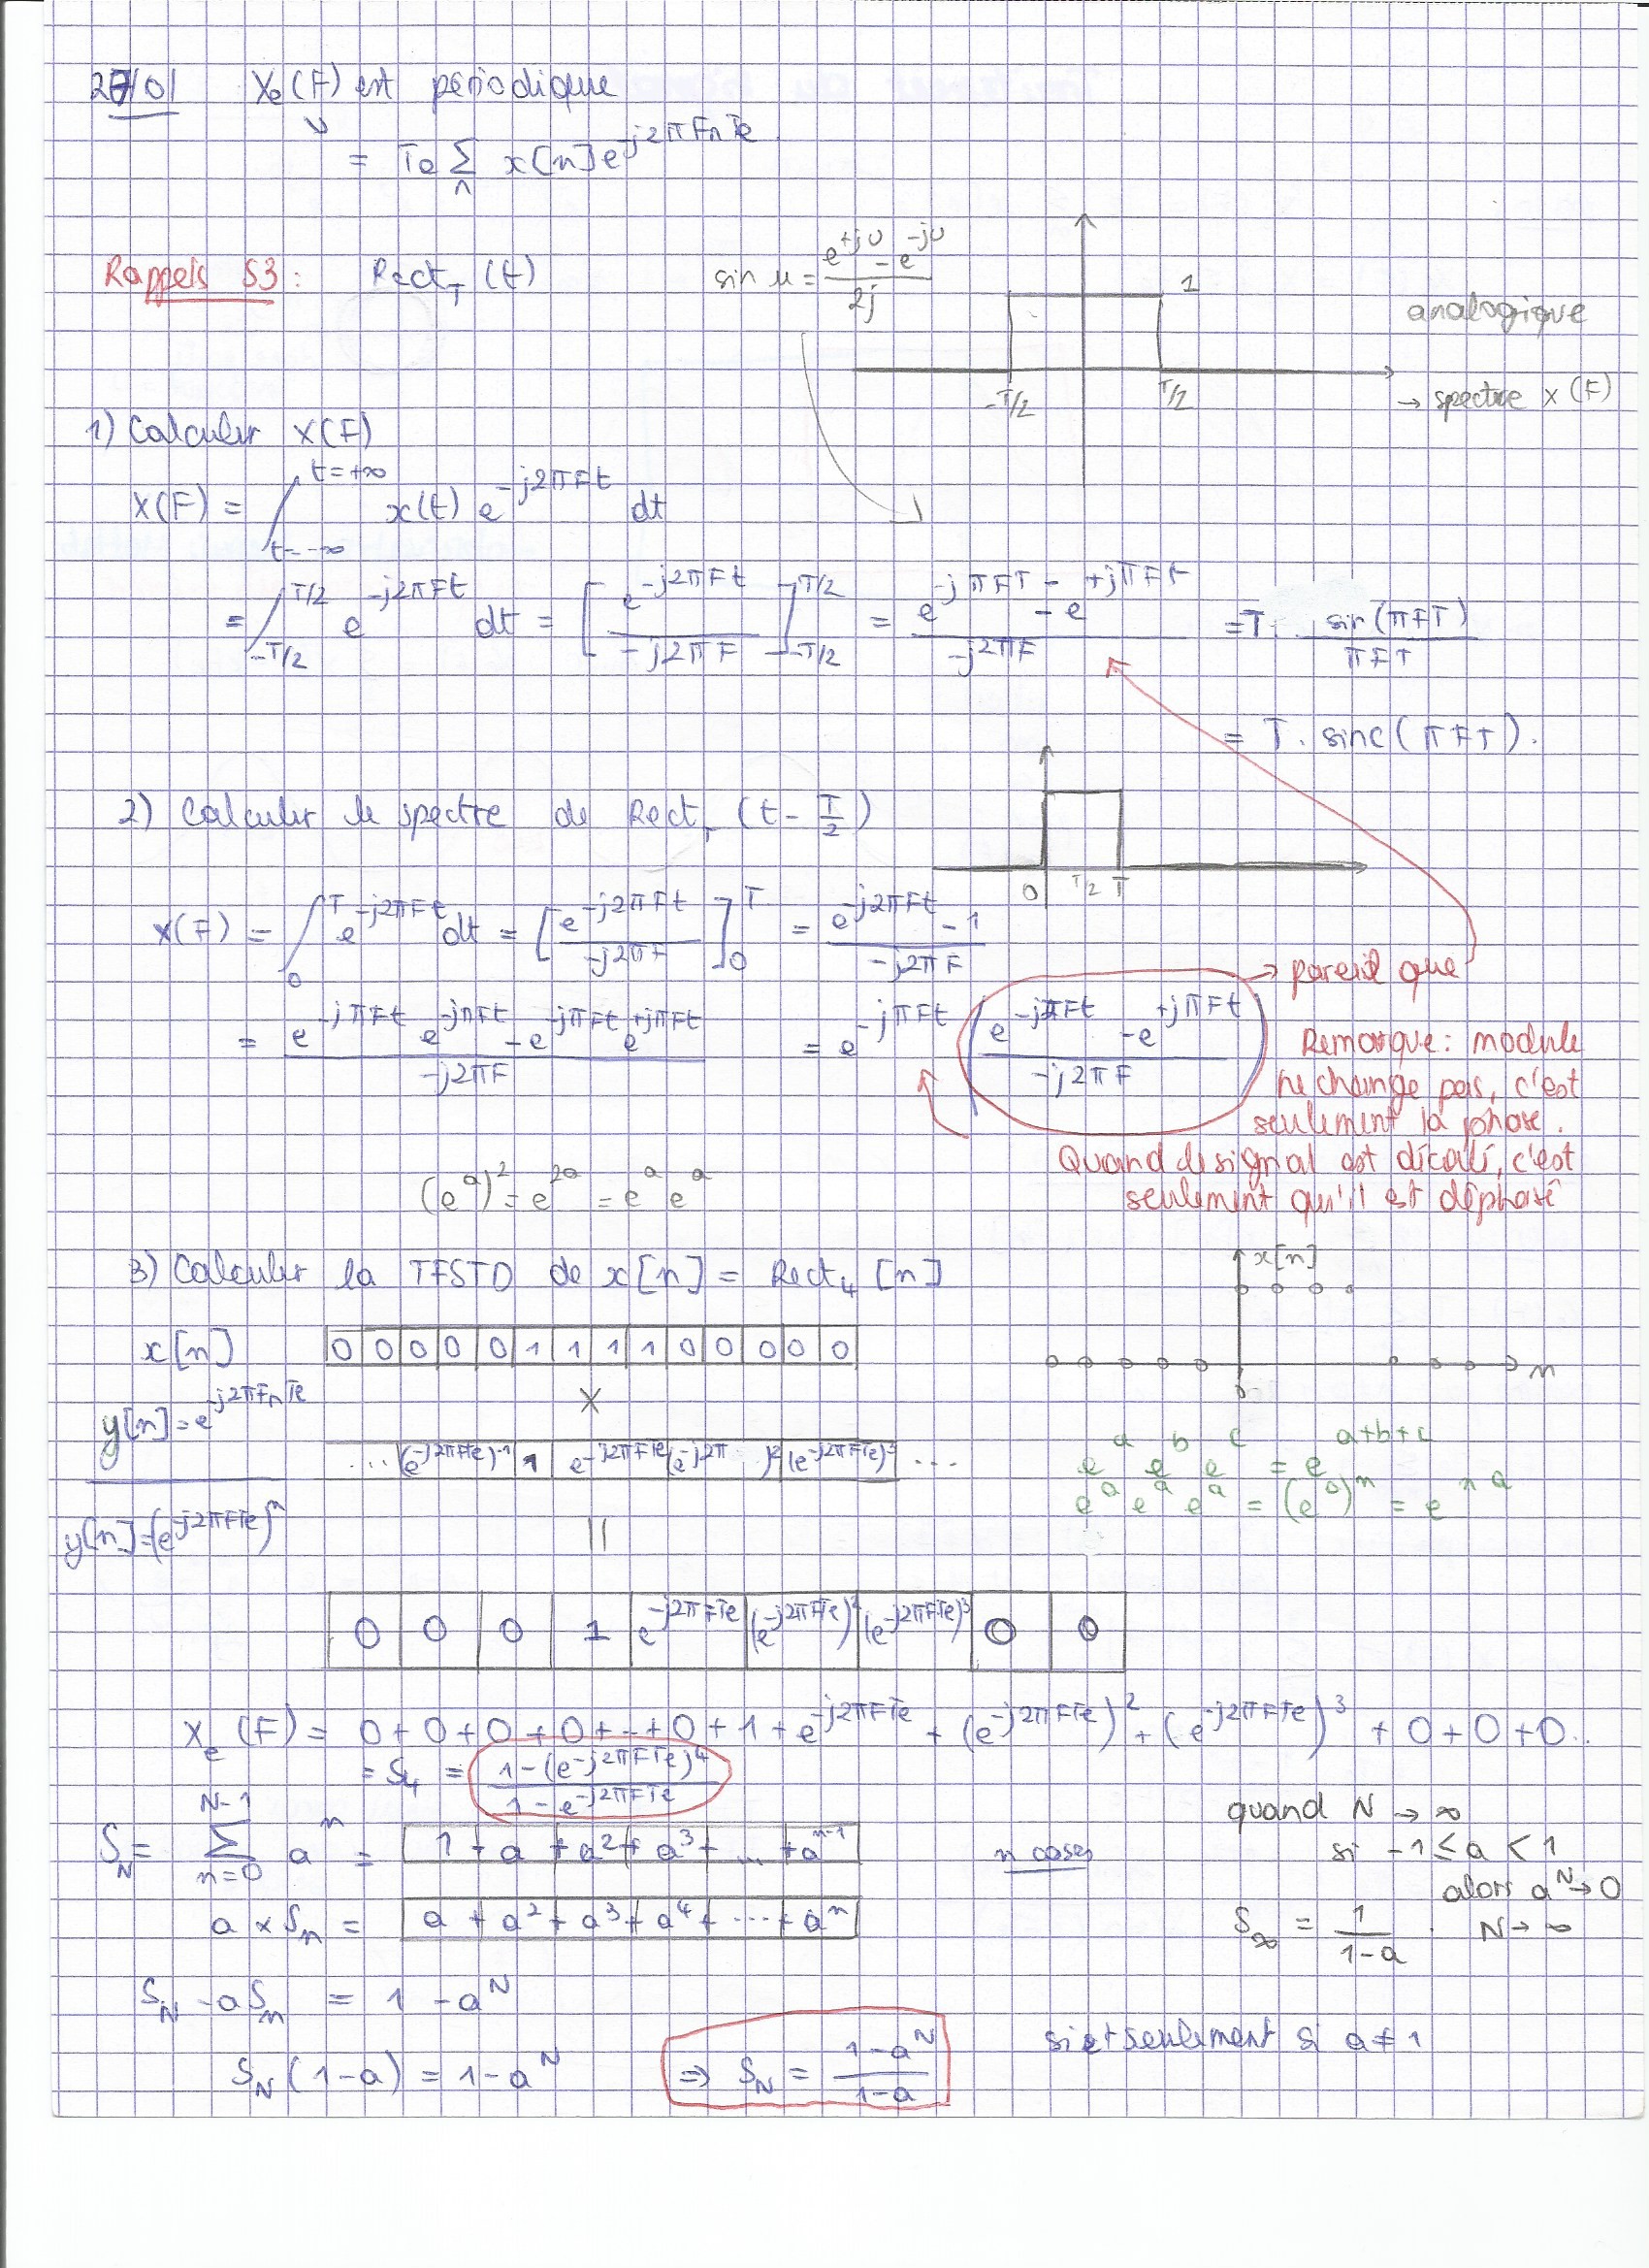 27/01 Xe(F) est périodique
= Te Σ x[n] e^{-j2πFnTe}
n
Rappels S3 : Rect_T (t)
sin u = (e^{+ju} - e^{-ju}) / 2j
1
-T/2 T/2
analogique
→ spectre X(F)
1) Calculer X(F)
X(F) = ∫_{t=-∞}^{t=+∞} x(t) e^{-j2πFt} dt
= ∫_{-T/2}^{T/2} e^{-j2πFt} dt = [e^{-j2πFt} / -j2πF]_{-T/2}^{T/2} = (e^{-jπFT} - e^{+jπFT}) / -j2πF = T . sin(πFT) / πFT
= T. sinc(πFT).
2) Calculer le spectre de Rect_T (t - T/2)
0 T/2 T
X(F) = ∫_0^T e^{-j2πFt} dt = [e^{-j2πFt} / -j2πF]_0^T = (e^{-j2πFt} - 1) / -j2πF
→ pareil que
= (e^{-jπFt} e^{-jπFt} - e^{-jπFt} e^{+jπFt}) / -j2πF = e^{-jπFt} ((e^{-jπFt} - e^{+jπFt}) / -j2πF)
Remarque : module
ne change pas, c'est
seulement la phase.
Quand le signal est décalé, c'est
seulement qu'il est déphasé
(e^a)^2 = e^{2a} = e^a e^a
3) Calculer la TFSTD de x[n] = Rect_4 [n]
x[n]
n
x[n] 0 0 0 0 0 1 1 1 1 0 0 0 0 0
×
y[n] = e^{-j2πFnTe}
... (e^{-j2πFTe})^{-1} 1 e^{-j2πFTe} (e^{-j2π })^2 (e^{-j2πFTe})^3 ...
e^a e^b e^c = e^{a+b+c}
e^a e^a e^a = (e^a)^n = e^{n a}
y[n] = (e^{-j2πFTe})^n
||
0 0 0 1 e^{-j2πFTe} (e^{-j2πFTe})^2 (e^{-j2πFTe})^3 0 0
Xe(F) = 0+0+0+0+...+0+1+e^{-j2πFTe} + (e^{-j2πFTe})^2 + (e^{-j2πFTe})^3 + 0+0+0..
= S_4 = (1-(e^{-j2πFTe})^4) / (1-e^{-j2πFTe})
S_N = Σ_{n=0}^{N-1} a^n = 1 + a + a^2 + a^3 + ... + a^{n-1} n cases
a × S_n = a + a^2 + a^3 + a^4 + ... + a^n
quand N → ∞
si -1 ≤ a < 1
alors a^N → 0
N → ∞
S_∞ = 1 / (1-a) .
S_N - aS_n = 1 - a^N
S_N (1-a) = 1-a^N ⇒ S_N = (1-a^N) / (1-a)
si et seulement si a ≠ 1